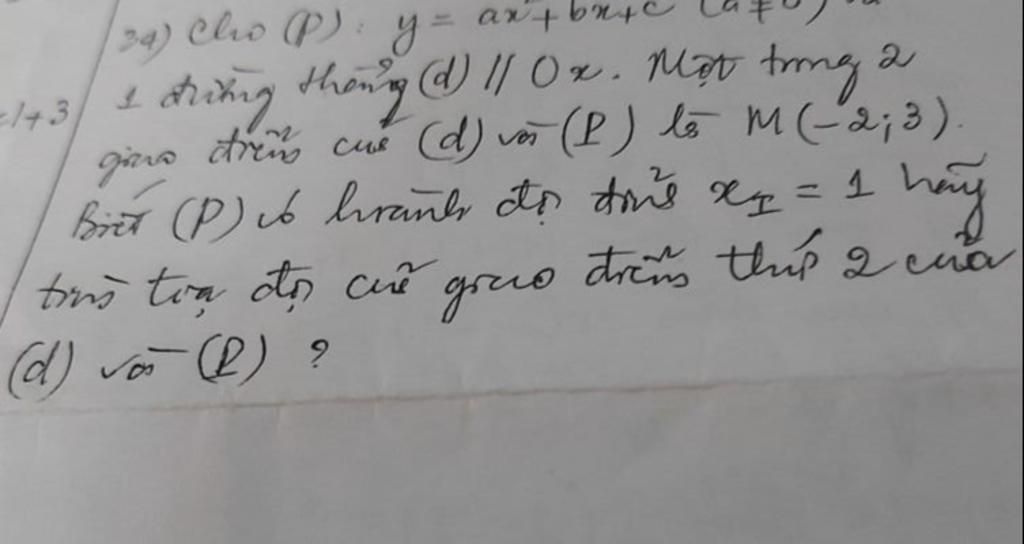 34) Cho (P): y = ax² + bx + c (a ≠ 0) và
1 đường thẳng (d) // Ox. Một trong 2
giao điểm của (d) và (P) là M(-2; 3).
Biết (P) có hoành độ đỉnh x_I = 1 hãy
tìm tọa độ của giao điểm thứ 2 của
(d) và (P) ?